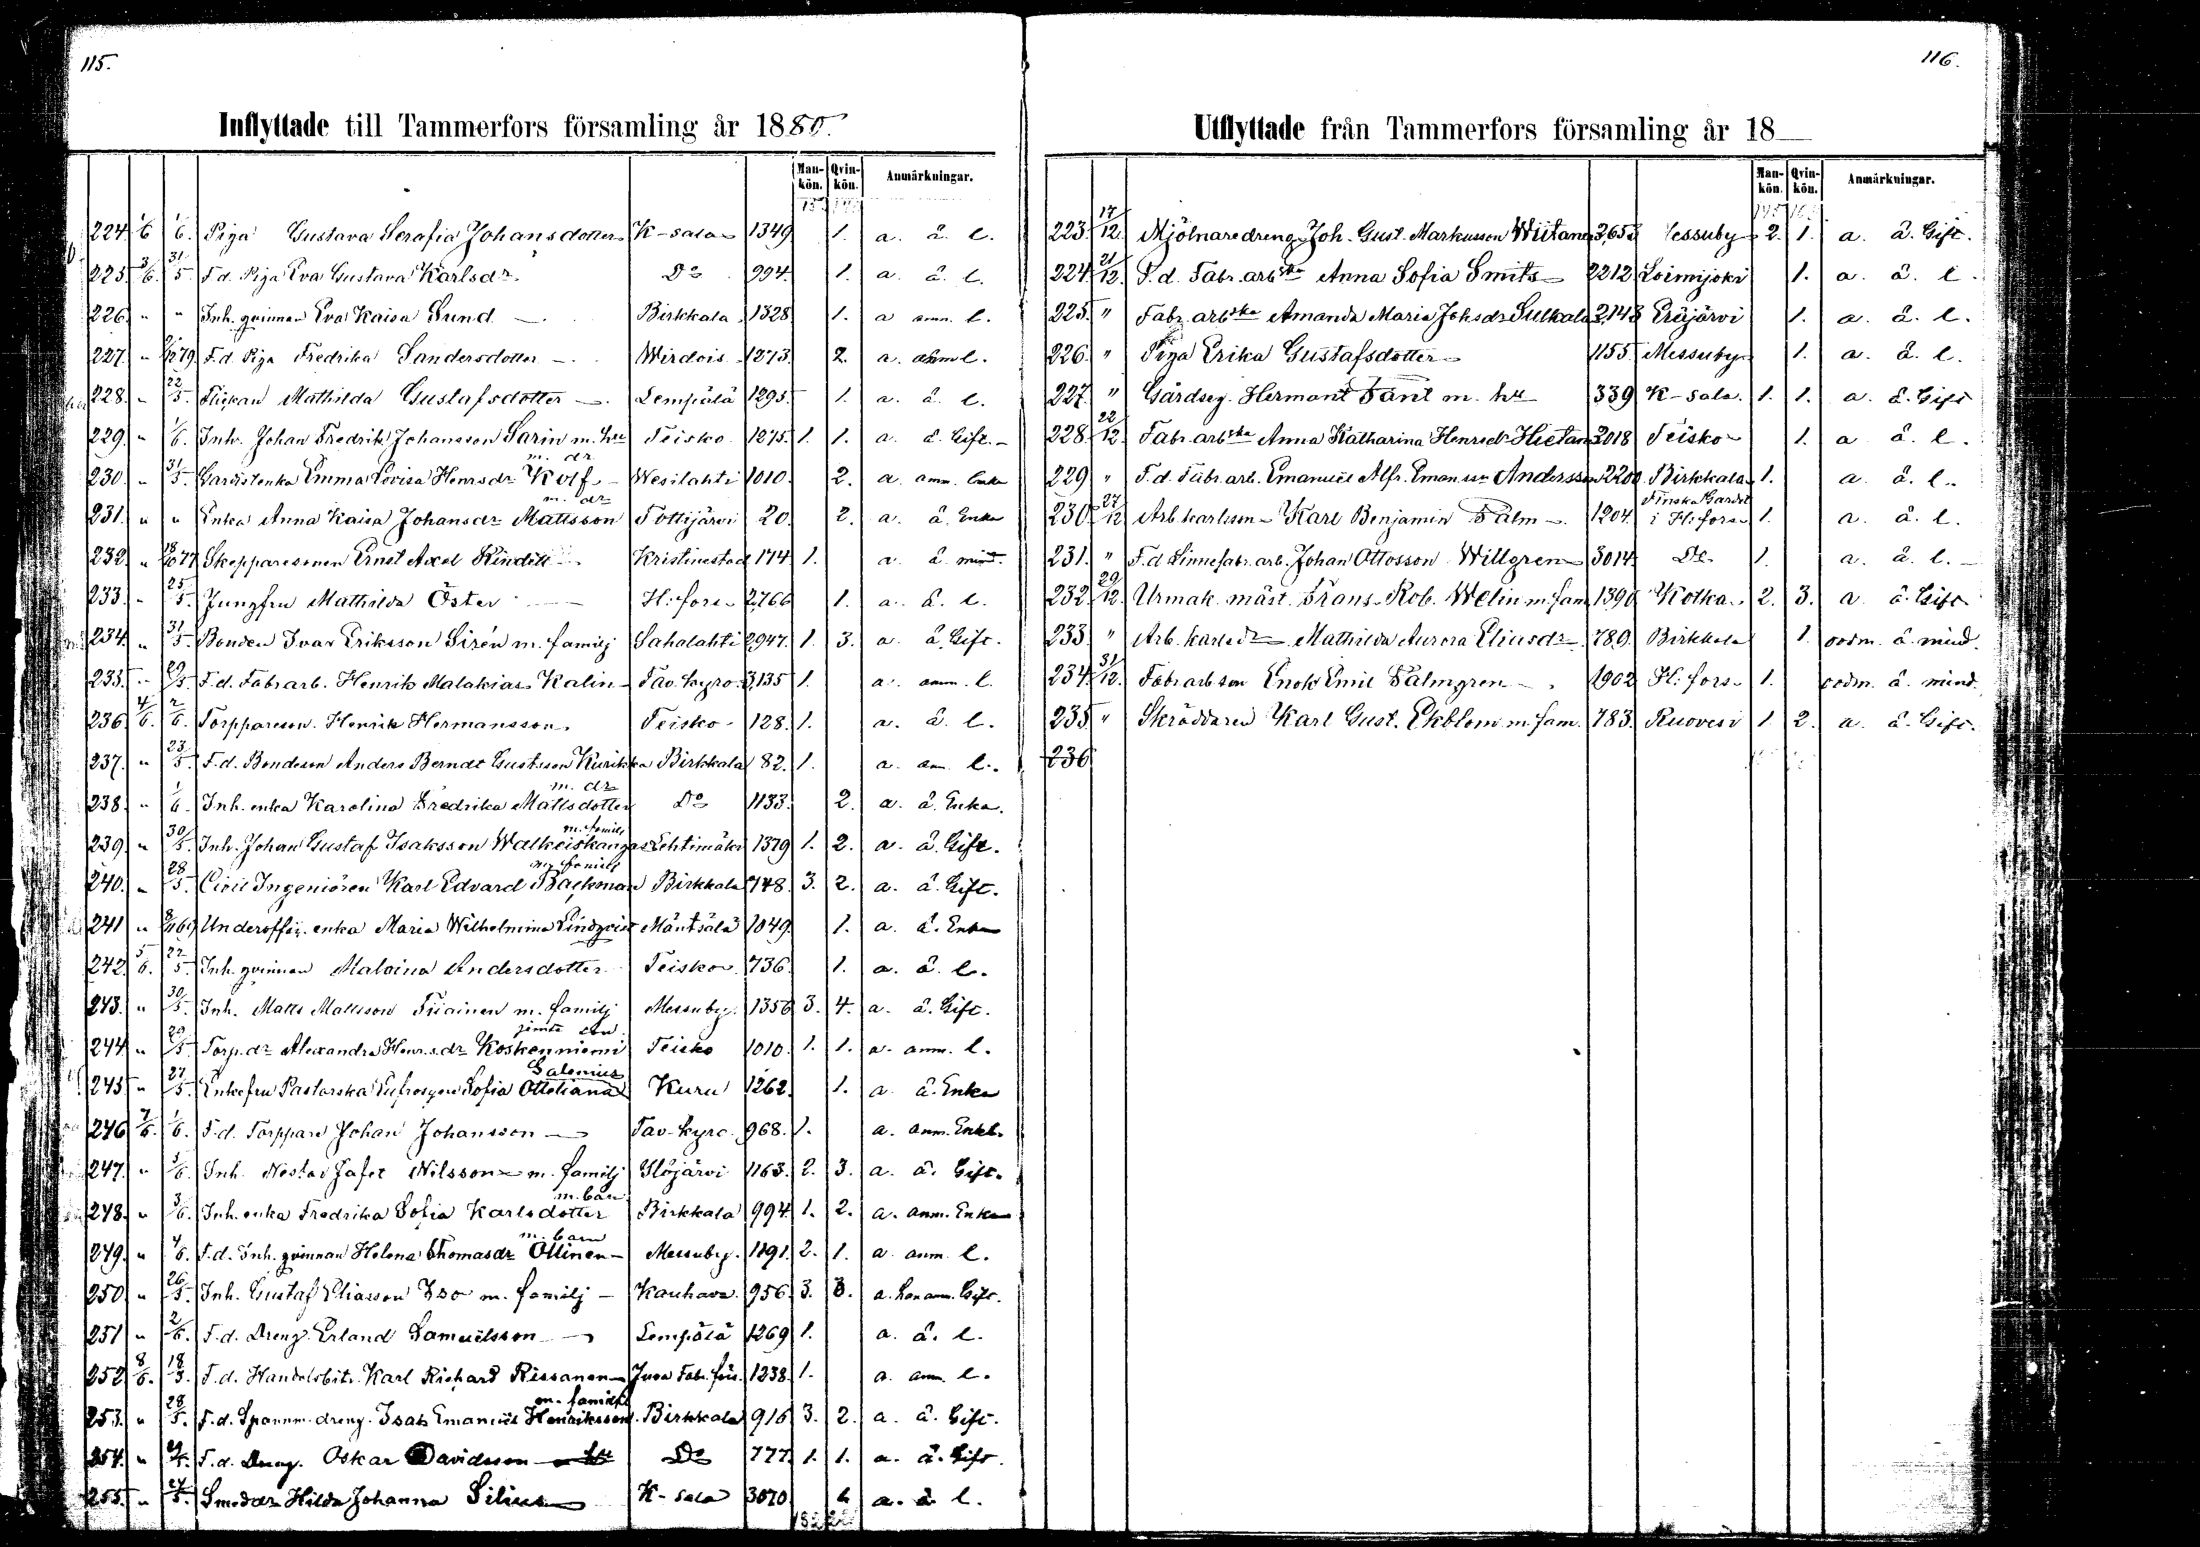 115.
Inflyttade till Tammerfors församling år 1880.
Mankön. Qvinkön. Anmärkningar.
224. 1/6 1/6. Piga Gustava Serafia Johansdotter K-sala 1349 1. a. â. l.
225. 3/6. 31/5. F.d. Piga Eva Gustava Karlsdr Do 994. 1. a. â. l.
226. " " Inh. qvinnan Eva Kaisa Sund Birkkala 1328 1. a anm. l.
227. " F.d. Piga Fredrika Sandersdotter Wirdois 1273. 2. a. l.
228. " 22/5. Flickan Mathilda Gustafsdotter Lempälä 1295. 1. a. â. l.
229. " 1/6. Inh. Johan Fredrik Johansson Sarin m. hu Teisko 1275. 1. 1. a. â. Gift.
230. " 31/5. Gardistenka Emma Lovisa Henrsdr Kolf m. dr Wesilahti 1010. 2. a anm. Enka
231. " " Enka Anna Kaisa Johansdr Mattsson m. dr Tottijärvi 20. 2. a. â. Enka
232. " 18/10 77 Skepparesonen Ernst Axel Rindell Kristinestad 174 1. a. â mind.
233. " 25/5. Jungfru Mathilda Öster H:fors 2,766 1. a. â. l.
234. " 31/5. Bonden Ivar Eriksson Sirén m. familj Sahalahti 2947. 1. 3. a. â. Gift.
235. " 29/5. F.d. Fabrarb. Henrik Malakias Kalin Tav. kyro 3,135 1. a. anm. l.
236. 4/6. 2/6. Torppareson. Henrik Hermansson Teisko 128. 1. a. â. l.
237. " 23/5. F.d. Bondeson Anders Berndt Gustsson Kurikka Birkkala 82. 1. a. am. l.
238. " 1/6. Inh. enka Karolina Fredrika Mattsdotter m. dr Do 1133. 2. a. â. Enka.
239. " 30/5. Inh. Johan Gustaf Isaksson Walkeiskangas m. familj Lehtimäki 1379 1. 2. a. â. Gift.
240. " 28/5. Civil Ingeniören Karl Edvard Backman m. familj Birkkala 748. 3. 2. a. â. Gift.
241 " 8/11 69 Underoffic. enka Maria Wilhelmina Lindqvist Mäntsälä 1049. 1. a. â. Enka
242. 5/6. 22/5. Inh. qvinnan Malvina Andersdotter Teisko 736. 1. a. â. l.
243. " 30/5. Inh. Matts Mattsson Tiainen m. familj Messuby. 1356 3. 4. a. â. Gift.
244. " 29/5. Torp.dr Alexandra Henr.s.dr Koskenniemi jemte son Teisko 1010. 1. 1. a. anm. l.
245. " 27/5. Enkefru Pastorska Eufrosyne Sofia Ottetiana Salenius Kuru 1262. 1. a. â. Enka
246 7/6. 1/6. F.d. Torppare Johan Johansson Tav-kyro. 968. 1. a. anm. Enkl.
247. " Inh. Nestor Jafet Nilsson m. familj Ylöjärvi 1163. 2. 3. a. â. Gift.
248. " 3/6. Inh. enka Fredrika Sofia Karlsdotter m. barn Birkkala 994. 1. 2. a. anm. Enka
249. " 4/6. F.d. Inh. qvinnan Helena Thomasdr Ollinen m. barn Messuby. 1191. 2. 1. a. anm. l.
250 " 26/5. Inh. Gustaf Eliasson Iso m. familj Kauhava. 956. 3. 3. a. han anm. Gift.
251 " 2/6. F.d. Dreng Erland Samuelsson Lempälä 1269 1. a. â. l.
252 8/6. 18/3. F.d. Handelsbitr. Karl Richard Rissanen Juva 1238. 1. a. anm. l.
253. " 28/5. F.d. Spannm. dreng Isak Emanuel Henriksson m. familj Birkkala 916 3. 2. a. â. Gift.
254. " F.d. Dreng. Oskar Davidsson Do 777. 1. 1. a. â. Gift.
255. " 27/5. Smedsdr Hilda Johanna Silius K-sala 3070 1. a. â. l.
116.
Utflyttade från Tammerfors församling år 18
Mankön. Qvinkön. Anmärkningar.
223. 17/12. Mjölnaredreng Joh. Gust. Markusson Wiitanen Messuby 2. 1. a. â. Gift.
224. 21/12. F.d. Fabr. arbska Anna Sofia Smits 2212 Loimijoki 1. a. â. l.
225. " Fabr. arbska Amanda Maria Johsdr Sulkala 2,143 Eräjärvi 1. a. â. l.
226. " Piga Erika Gustafsdotter 1155. Messuby 1. a. â. l.
227. " Gårdseg. Herman Fant m. hu 339 K-sala. 1. 1. a. â. Gift
228. 22/12. Fabr. arbska Anna Katharina Henrsdr Hietan 3018 Teisko 1. a â. l.
229 " F.d. Fabr. arb. Emanuel Alfr. Emanssn Andersson 2200 Birkkala 1. a. â. l.
230. 27/12 Arb. karlsson Karl Benjamin Palm 1204. Finska Gardet i H:fors 1. a. â. l.
231. " F.d Linnefabr. arb. Johan Ottosson Willgren 3014. Do 1. a. â. l.
232. 29/12. Urmak. mäst. Frans Rob. Welin m. fam 1390 Kotka 2. 3. a. â. Gift.
233. " Arb. karlsdr Mathilda Aurora Eliusdr 789. Birkkala 1. oadm. â. mind.
234. 31/12. Fabr arb son Enok Emil Palmgren 1902 H:fors 1. oadm. â. mind.
235. " Skräddaren Karl Gust. Ekblom m. fam. 783. Ruovesi 1 2. a. â. Gift.
236